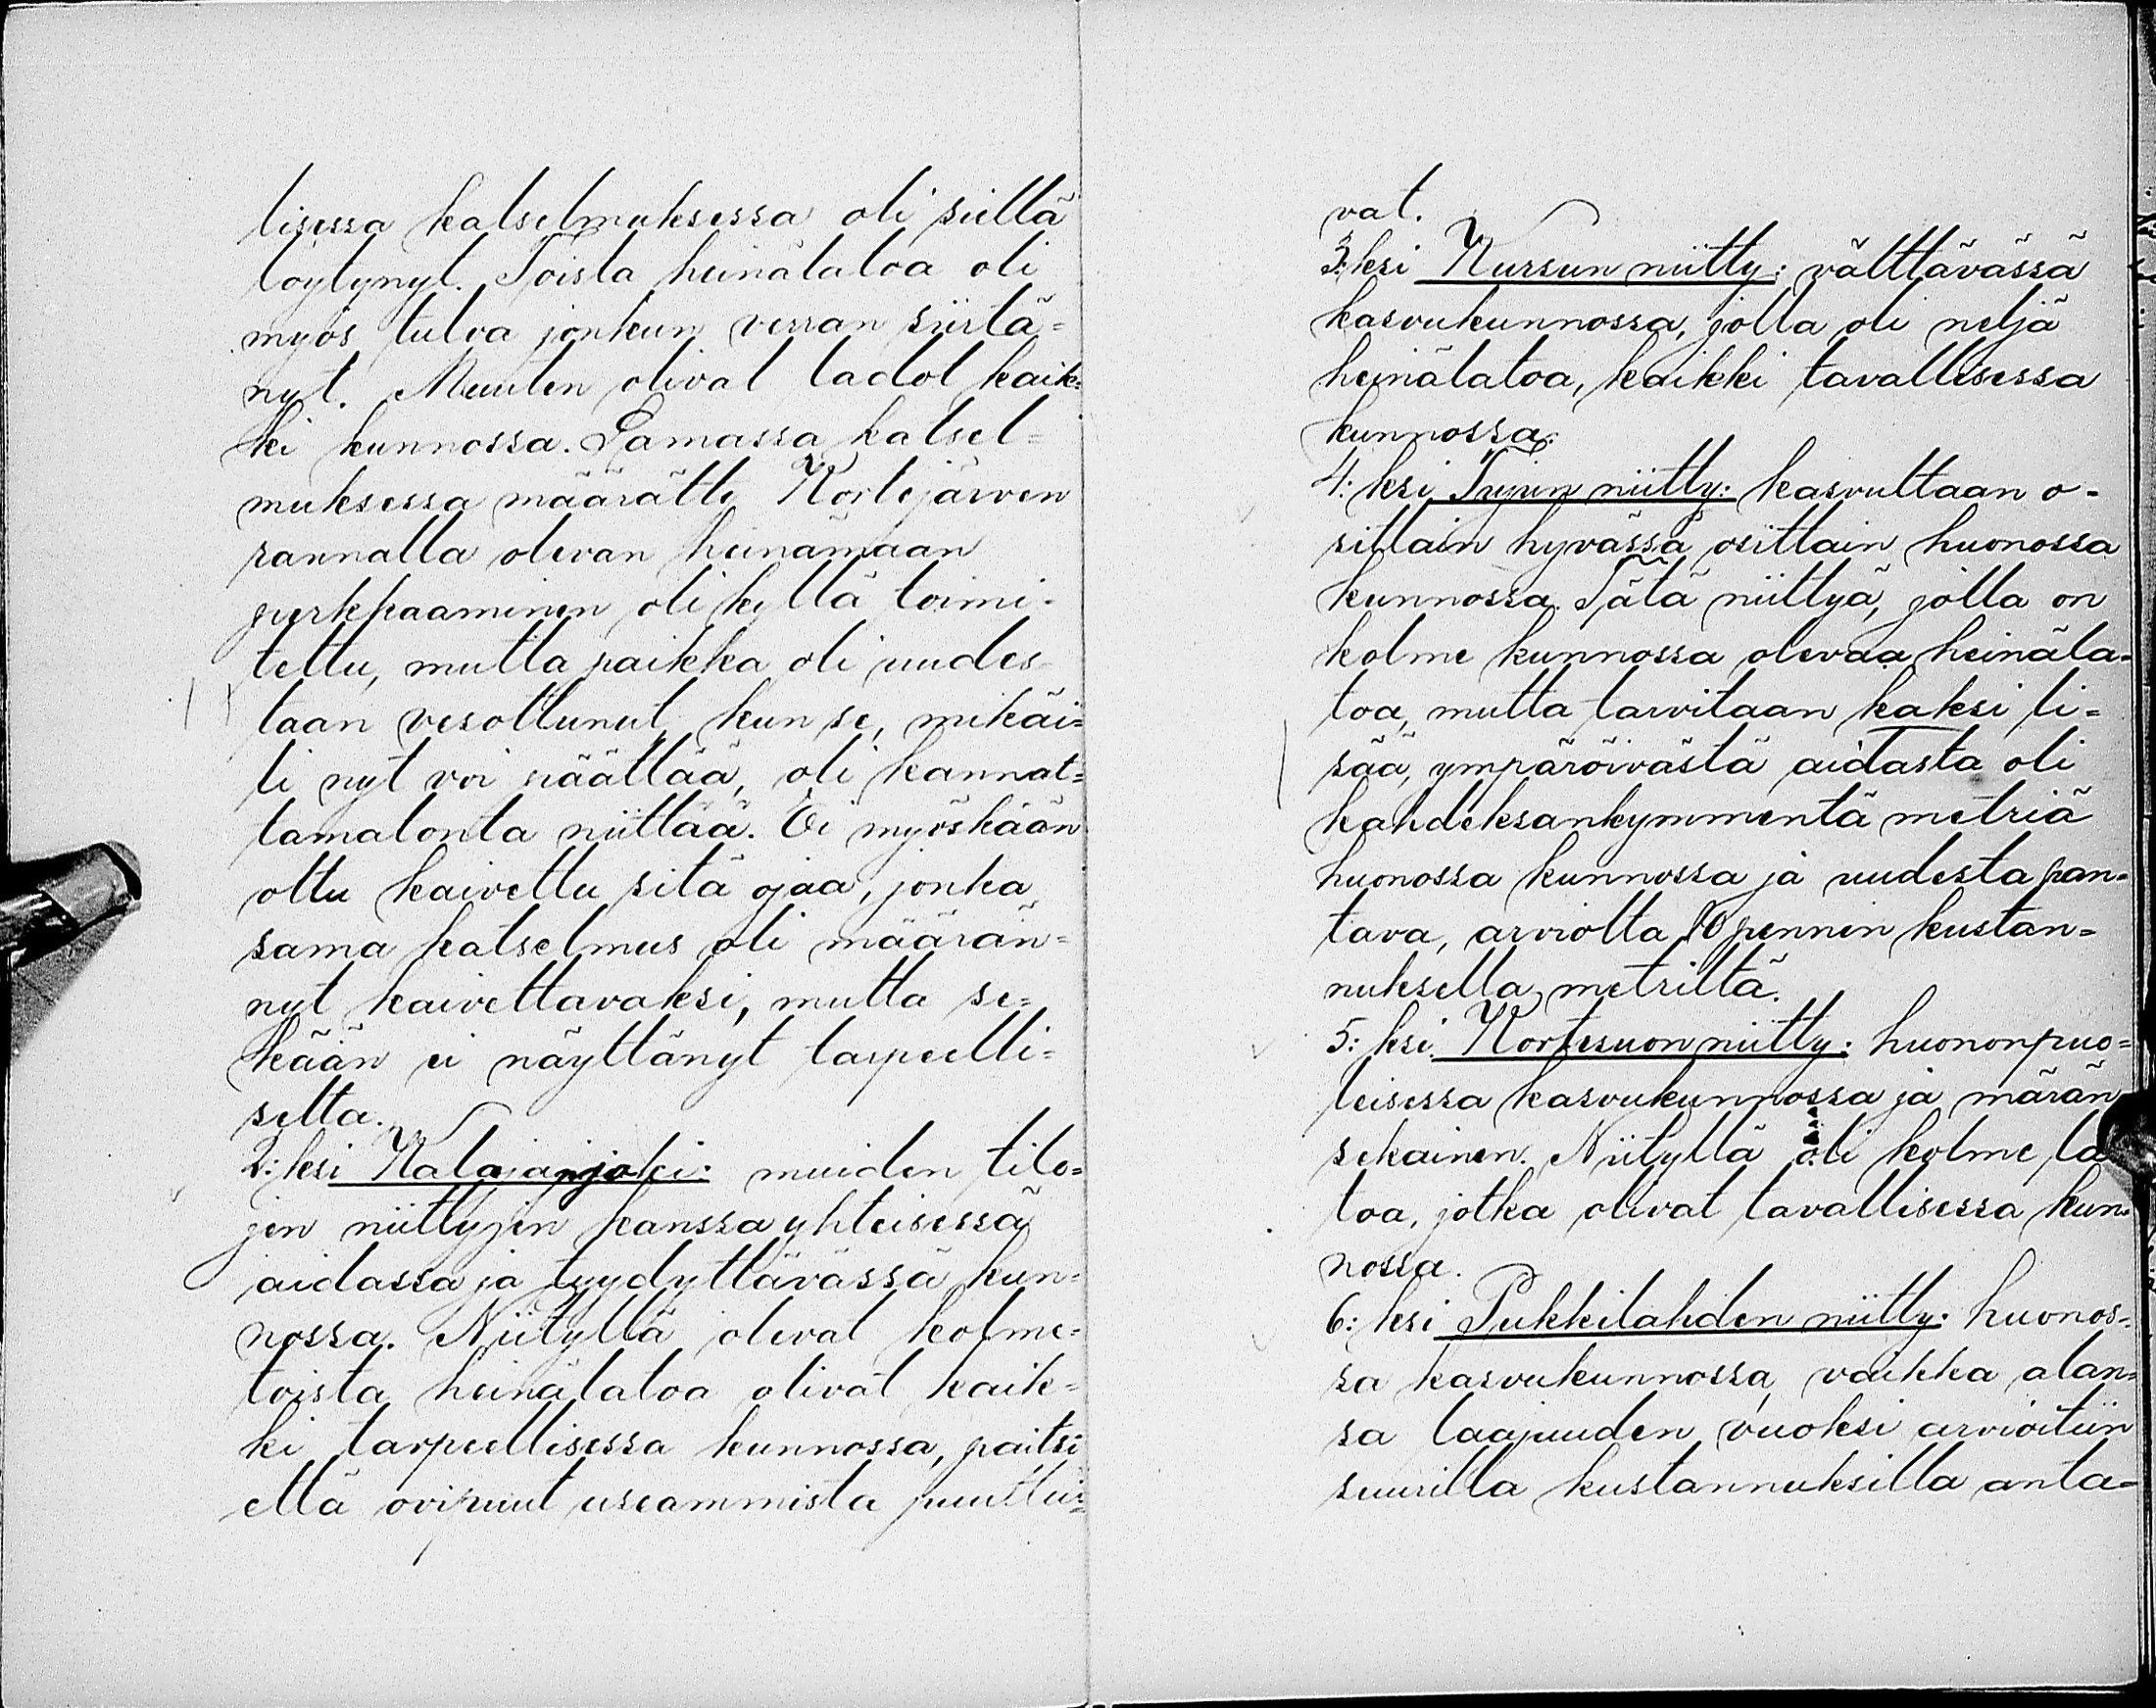 lisessa katselmuksessa oli siellä
löytynyt. Toista heinälatoa oli
myös tulva jonkun verran siirtä=
nyt. Muuten olivat ladot kaik=
ki kunnossa. Samassa katsel=
muksessa määrätty Kortejärven
rannalla olevan heinämaan
perkkaaminen oli kyllä toimi=
tettu, mutta paikka oli uudes=
taan vesottunut kun se, mikäi=
li nyt voi päättää, oli kannat=
tamatonta niittää. Ei myöskään
oltu kaivettu sitä ojaa, jonka
sama katselmus oli määrän=
nyt kaivettavaksi, mutta se=
kään ei näyttänyt tarpeelli=
selta.
2: ksi Kalajanjoki: muiden tilo=
jen niittyjen kanssa yhteisessä
aidassa ja tyydyttävässä kun=
nossa. Niityllä olevat kolme=
toista heinälatoa olivat kaik=
ki tarpeellisessa kunnossa, paitsi
että ovipuut useammista puuttui=
vat.
3: ksi Kursun niitty: välttävässä
kasvukunnossa, jolla oli neljä
heinälatoa, kaikki tavallisessa
kunnossa.
4: ksi niitty: kasvultaan o-
sittain hyvässä osittain huonossa
kunnossa. Tätä niittyä, jolla on
kolme kunnossa olevaa heinäla=
toa, mutta tarvitaan kaksi li=
sää, ympäröivästä aidasta oli
kahdeksankymmentä metriä
huonossa kunnossa ja uudesta pan=
tava, arviolta 10 pennin kustan=
nuksella metriltä.
5: ksi Kortesuon niitty: huononpuo=
leisessa kasvukunnossa ja märän
sekainen. Niityllä oli kolme la
toa, jotka olivat tavallisessa kun=
nossa.
6: ksi Pukkilahden niitty: huonos=
sa kasvukunnossa, vaikka alan=
sa laajuuden vuoksi arvioitiin
suurilla kustannuksilla anta=